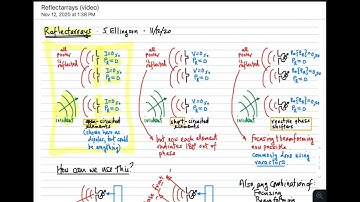 Reflectarrays (video)
Nov 12, 2020 at 1:38 PM
Reflectarrays · S. Ellingson · 11/12/20
all power is reflected
I=0 so
P_R=0
I=0 so
P_R=0
incident
open-circuited elements
(shown here as dipoles, but could be anything)
all power is reflected
V=0 so
P_R=0
V=0 so
P_R=0
incident
short-circuited elements
but now each element scatters 180° out of phase
all power is reflected
P_R=0
P_R=0
incident
reactive phase shifters
focusing/beamforming now possible
commonly done using varactors.
How can we use this?
Also, any combination of:
Focusing
Beamforming